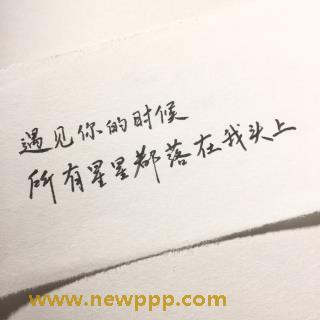 遇见你的时候
所有星星都落在我头上
www.newppp.com